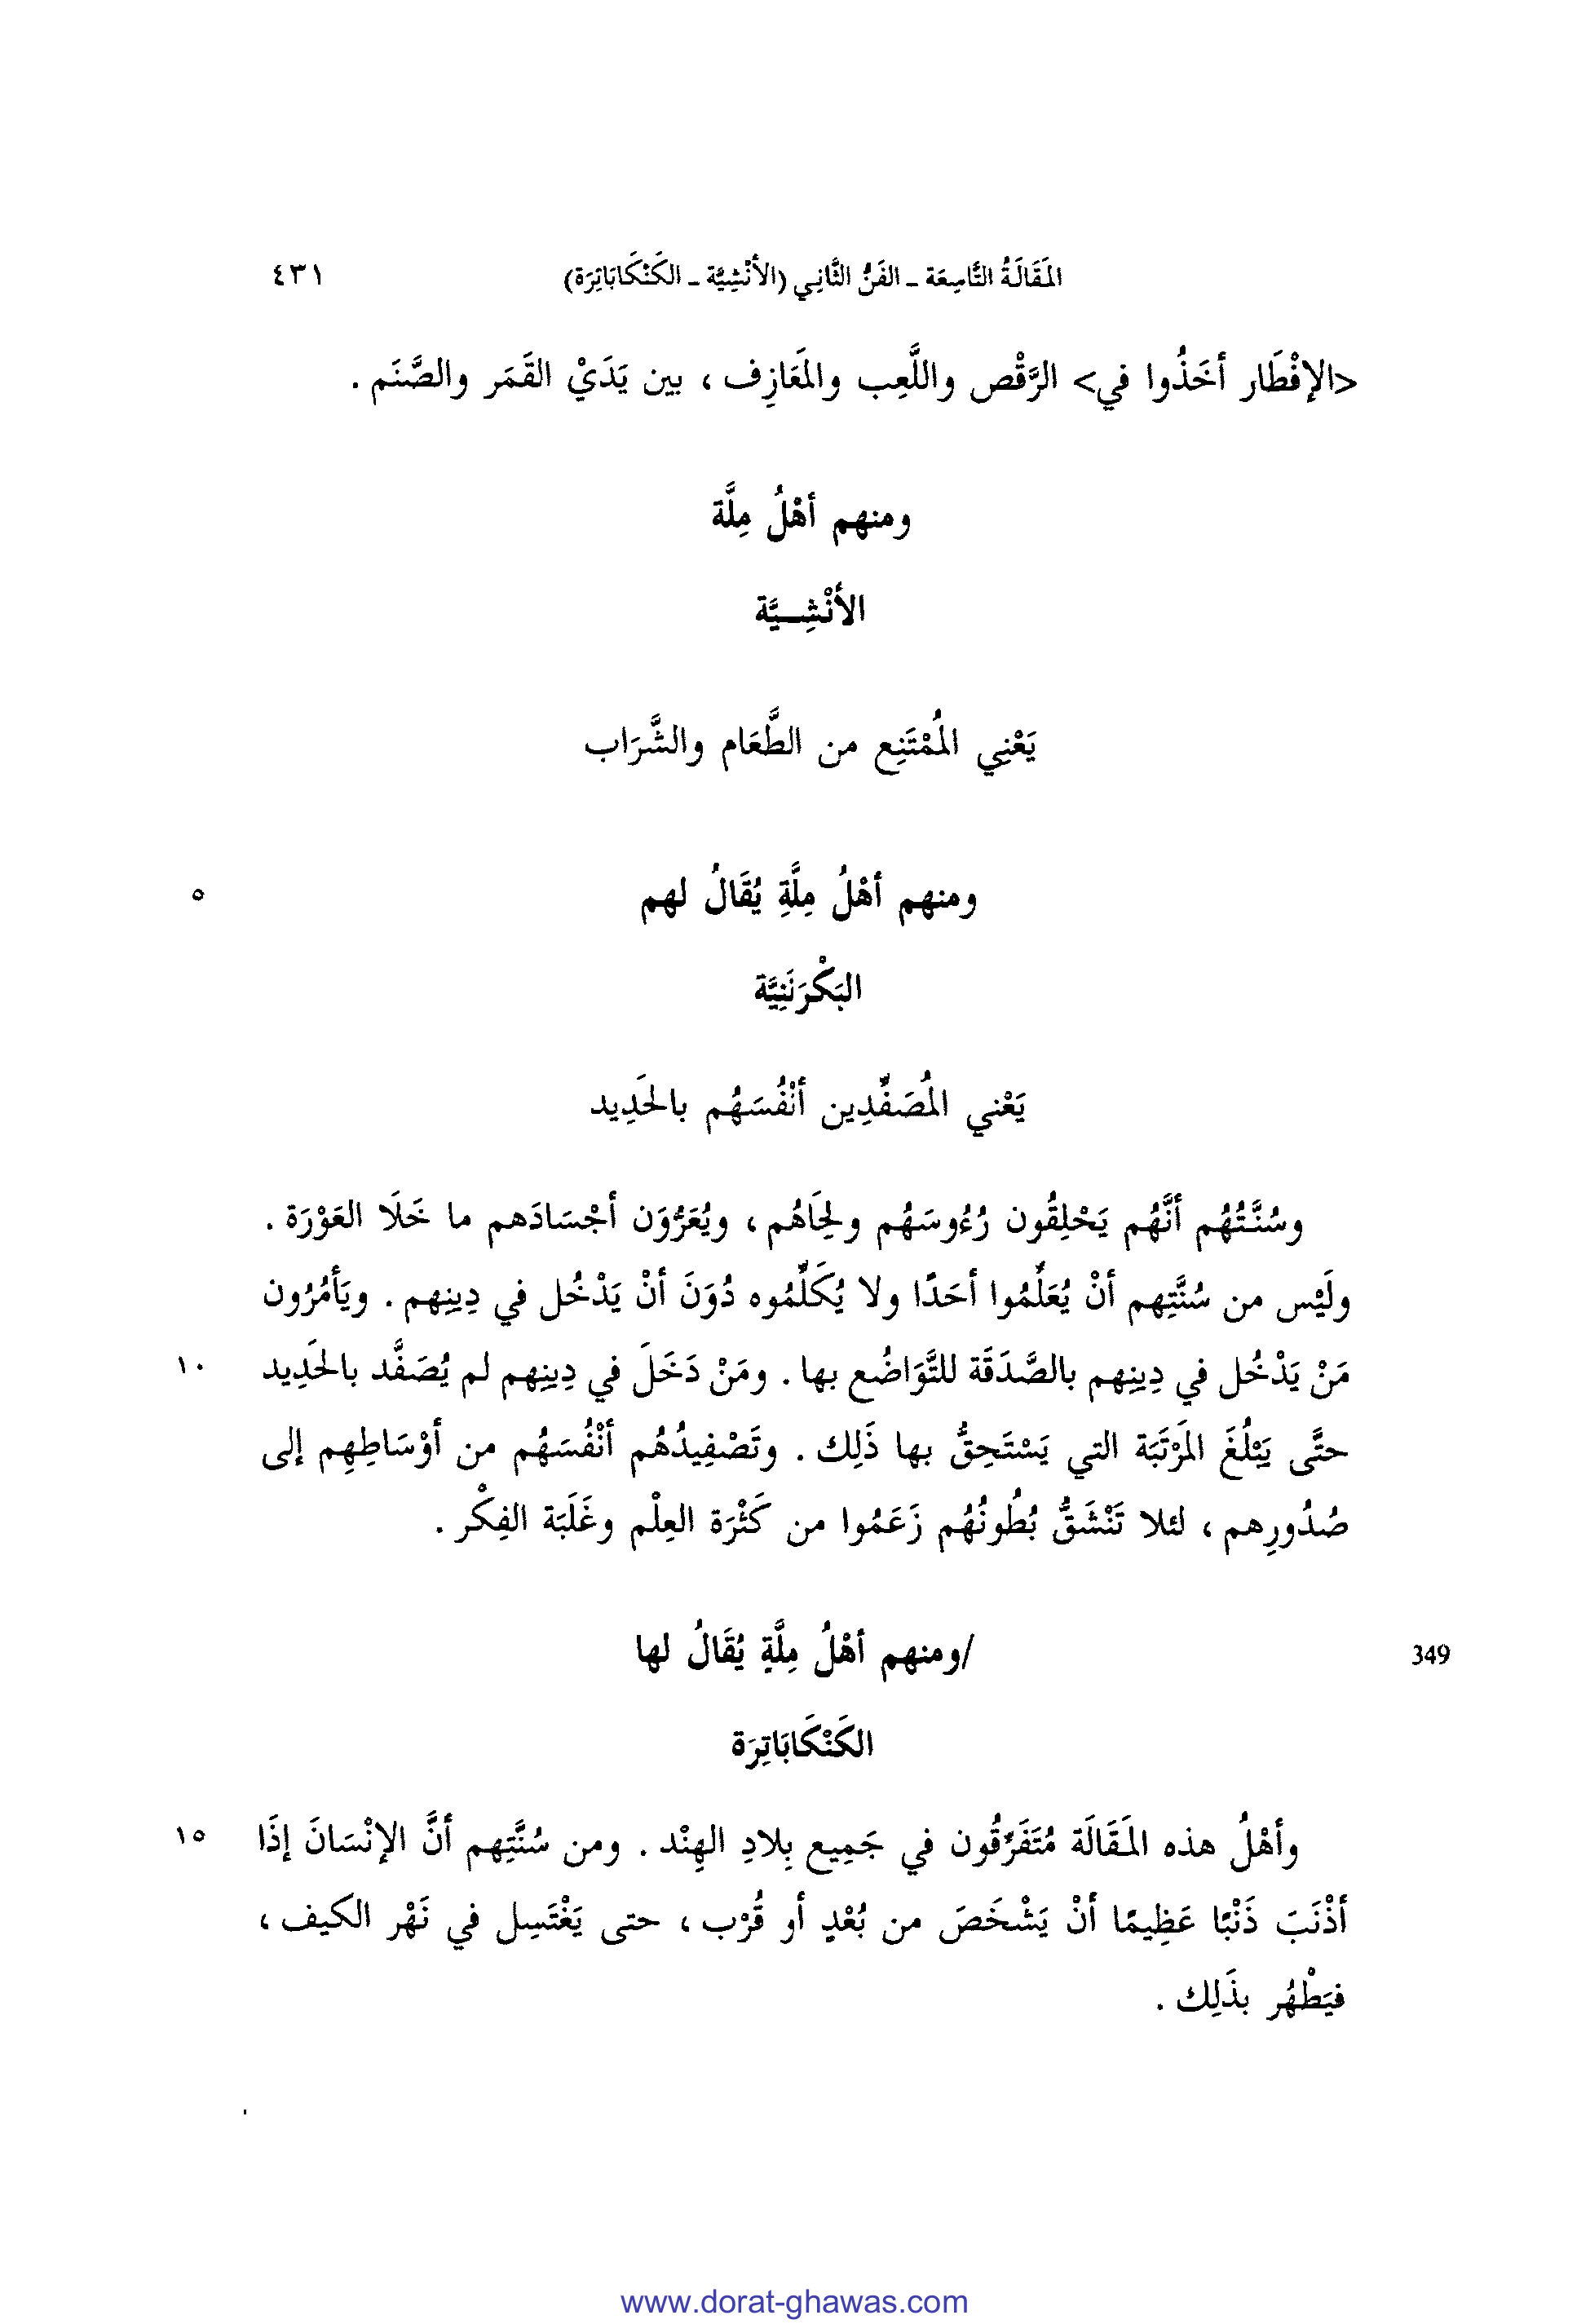 المَقَالَةُ التَّاسِعَة ـ الفَنُّ الثَّانِي (الأَنْشِيَّة ـ الكَنْكَابَاتِرَة) ٤٣١
<الإفْطَار أخَذُوا في> الرَّقْص واللَّعِب والمَعَازِف ، بين يَدَيْ القَمَر والصَّنَم .
ومنهم أهْلُ مِلَّة
الأنْشِـيَّة
يَعْنِي المُمْتَنِع من الطَّعَام والشَّرَاب
ومنهم أهْلُ مِلَّةِ يُقَالُ لهم ٥
البَكْرَنَنِيَّة
يَعْني المُصَفِّدِين أنْفُسَهُم بالحَدِيد
وسُنَّتُهُم أنَّهُم يَحْلِقُون رُءُوسَهُم ولِحَاهُم ، ويُعَرُّوَن أجْسَادَهم ما خَلَا العَوْرَة .
ولَيْس من سُنَّتِهم أنْ يُعَلِّمُوا أحَدًا ولا يُكَلِّمُوه دُوَنَ أنْ يَدْخُل في دِينِهم . ويَأمُرُون
مَنْ يَدْخُل في دِينِهم بالصَّدَقَة للتَّوَاضُع بها . ومَنْ دَخَلَ في دِينِهم لم يُصَفَّد بالحَدِيد ١٠
حتَّى يَبْلُغَ المَرْتَبَة التي يَسْتَحِقُّ بها ذَلِك . وتَصْفِيدُهُم أنْفُسَهُم من أوْسَاطِهِم إلى
صُدُورِهم ، لئلا تَنْشَقُّ بُطُونُهُم زَعَمُوا من كَثْرَة العِلْم وغَلَبَة الفِكْر .
349 /ومنهم أهْلُ مِلَّةٍ يُقَالُ لها
الكَنْكَابَاتِرَة
وأهْلُ هذه المَقَالَة مُتَفَرِّقُون في جَمِيع بِلادِ الهِنْد . ومن سُنَّتِهم أنَّ الإنْسَانَ إذَا ١٥
أذْنَبَ ذَنْبًا عَظِيمًا أنْ يَشْخَصَ من بُعْدٍ أو قُرْب ، حتى يَغْتَسِل في نَهْر الكيف ،
فيَطْهُر بذَلِك .
www.dorat-ghawas.com